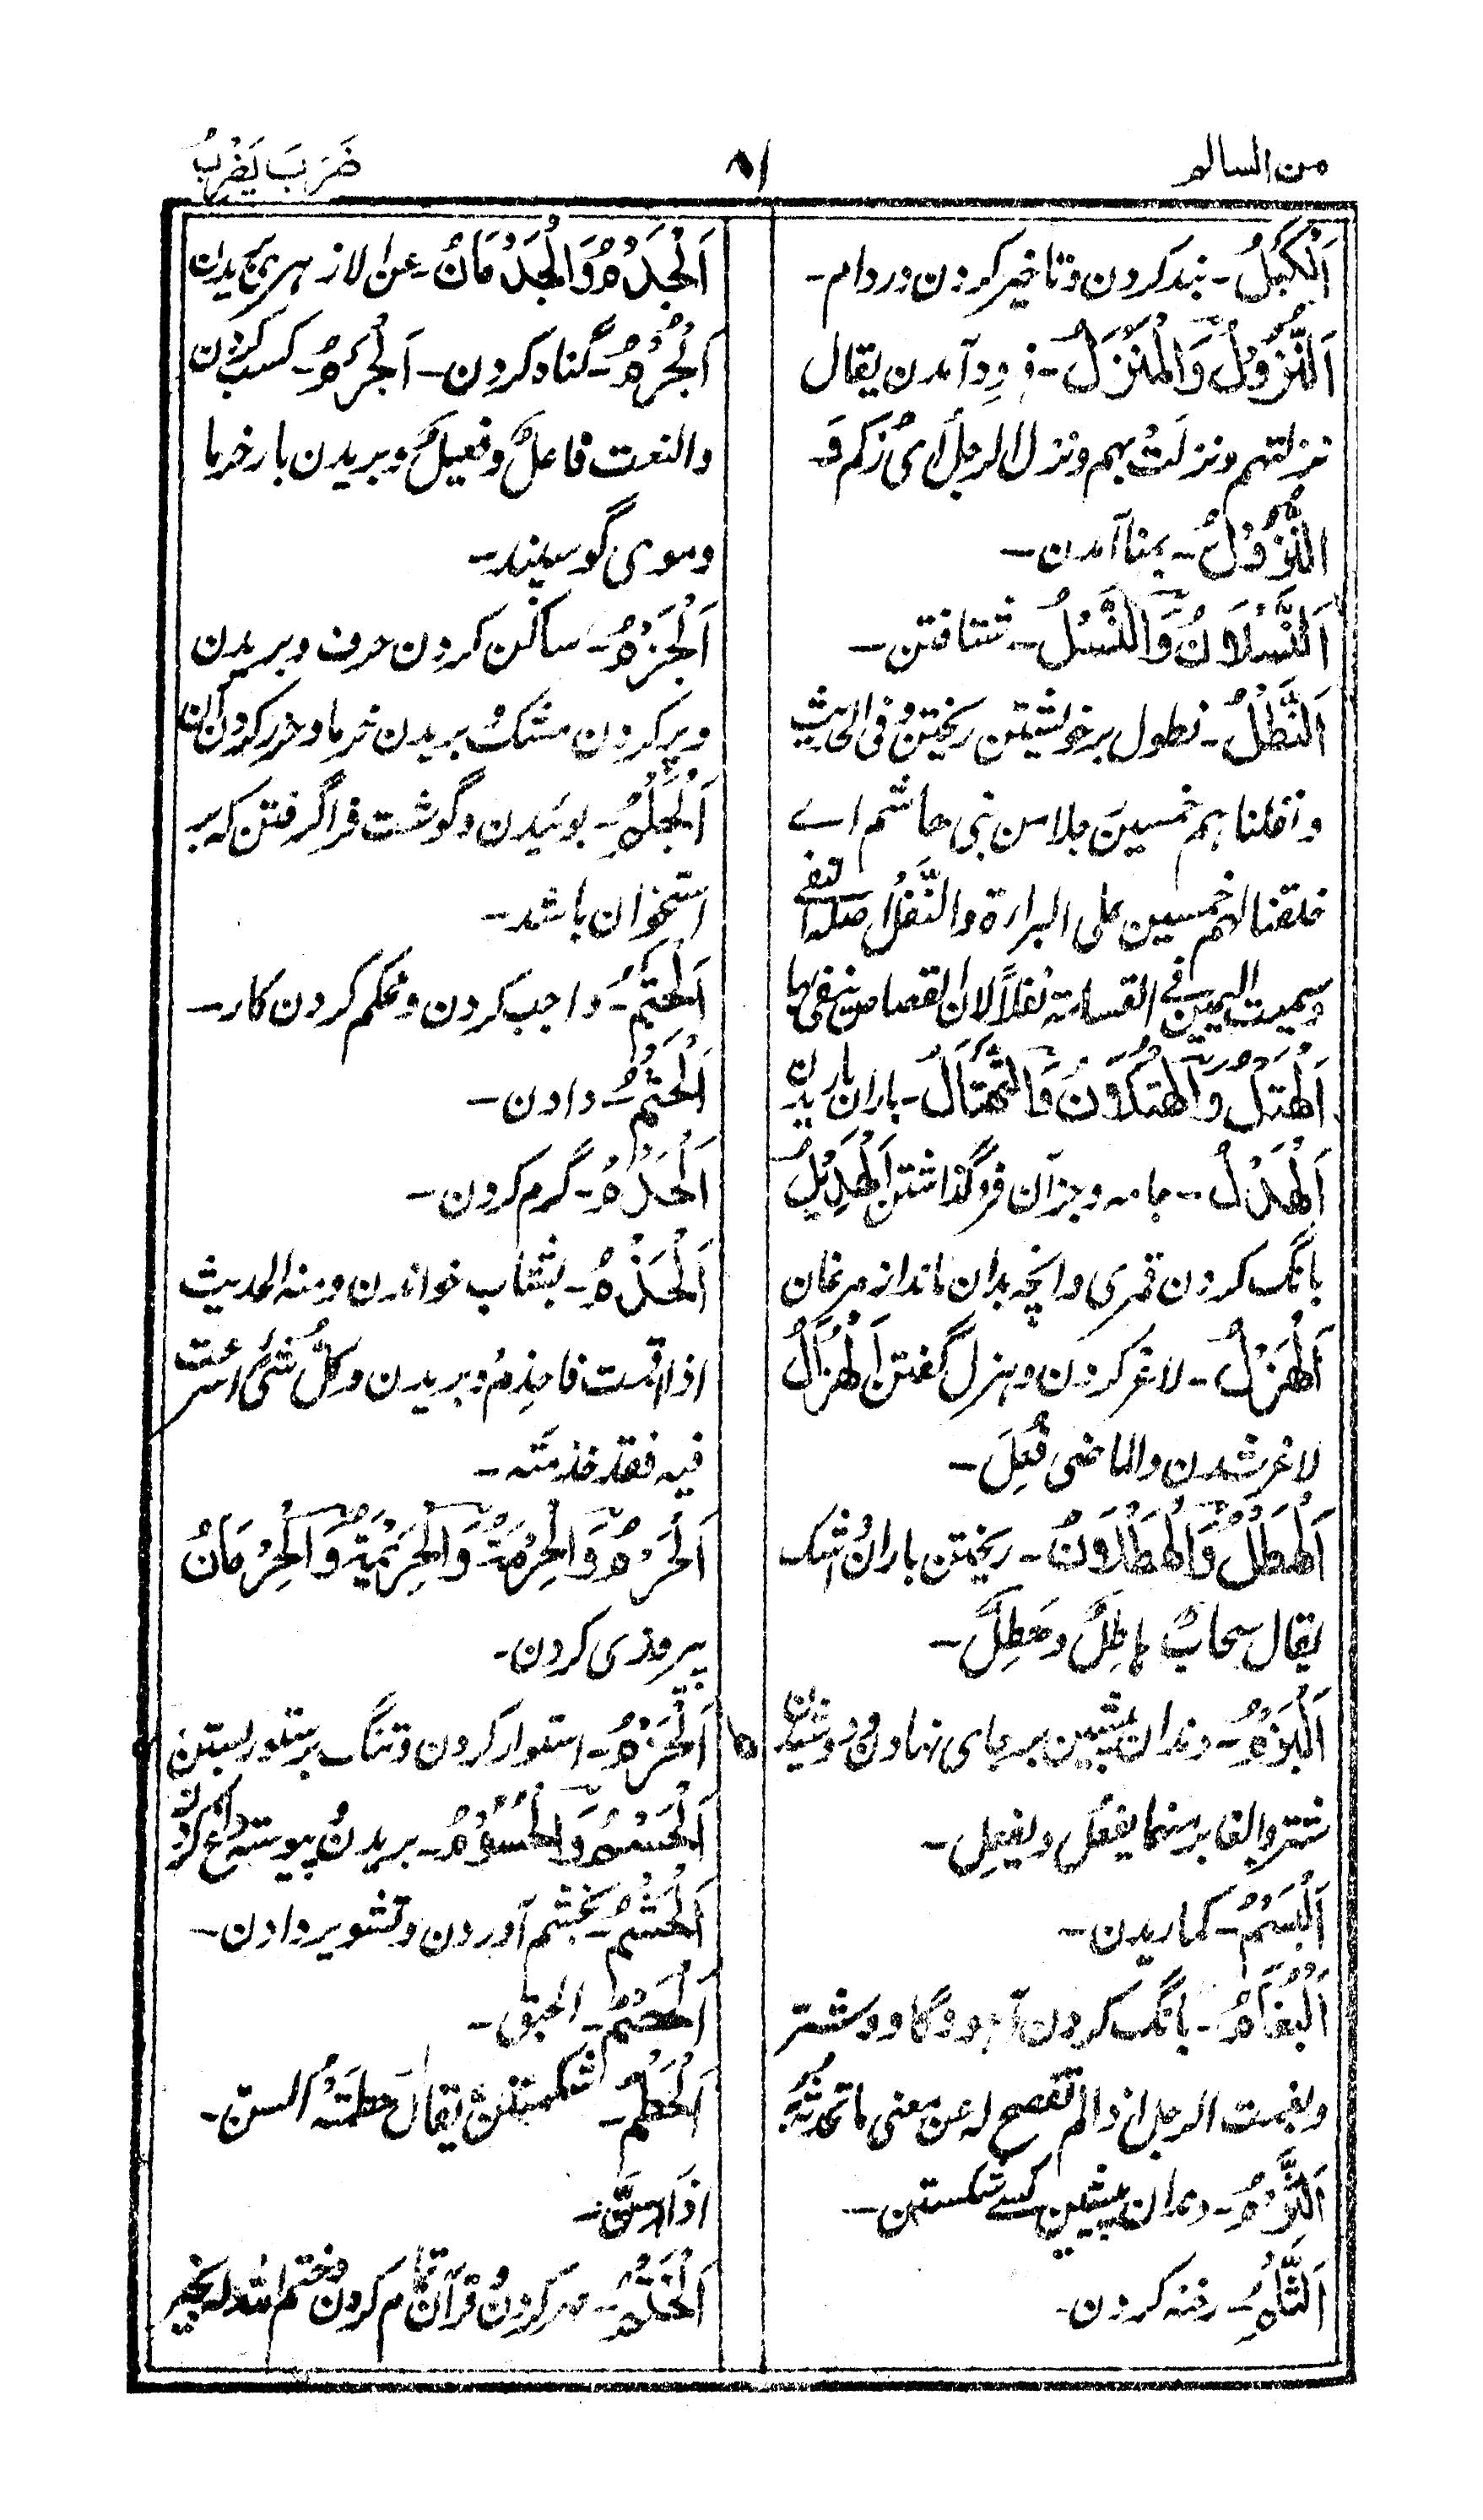 من السالم
۸۱
ضَرَبَ يَضْرِبُ
اَلْكَبْلُ - بند کردن و تاخیر کردن در وام -
اَلنُّزُوْلُ وَالْمَنْزَلُ - فرود آمدن يقال
نزلتهم ونزلتُ بهم ونزل الرجل اى زُكِم وَ
النُّزُوْلُ - بمنا آمدن -
اَلنَّسْلَانُ وَالنَّسْلُ - شتافتن -
اَلنَّطْلُ - نطول بر خویشتن ریختن وفى الحديث
خمسين من بنى هاشم اے
خلقنا لهم خمسين على البراءة والنَّفْلُ اصله النفى
وسميت اليمين في القسامة نفلاً لان القصاص ينفى بها
اَلْهَتْلُ وَالْهَتَلَانُ وَالتَّهْتَالُ - باران باریدن
اَلْهَدْلُ - جامه وجزآن فروگذاشتن اَلْهَدِيْلُ
بانگ کردن قمری وانچه بدان ماند از مرغان
اَلْهَزْلُ - لاغر کردن وهزل گفتن اَلْهُزَالُ
لاغر شدن والماضى فُعِلَ -
اَلْهَطْلُ وَالْهَطَلَانُ - ریختن باران واشک
يقال سحابٌ هاطِلٌ وهطِلٌ -
اَلْبَزْمُ - دندان پیشین بر جای نهادن ودوشیدن
شتر والغابر منهما يفعُل ويفعِل -
اَلْبَسْمُ - کماریدن -
اَلْبُغَامُ - بانگ کردن آهو وگاو وشتر
وبغمت الرجل اذا لم تفصح له عن معنى ما تحدثه به
اَلثَّرْمُ - دندان پیشین کسے شکستن -
اَلثَّلْمُ - رخنه کردن -
اَلْجَذْمُ وَالْجَذْمَانُ - بریدن
اَلْجُرْمُ - گناه کردن - اَلْجَرْمُ - کسب کردن
والنعت فاعلٌ وفعيلٌ وبریدن بار خرما
وموی گوسپند -
اَلْجَزْمُ - ساکن کردن حرف وبریدن
وپر کردن مشک وبریدن خرما وحزر کردن آن
اَلْجَلْمُ - بوئیدن وگوشت فراگرفتن که بر
استخوان باشد -
اَلْحَتْمُ - واجب کردن ومحکم کردن کار -
اَلْحَثْمُ - دادن -
اَلْحَدْمُ - گرم کردن -
اَلْحَذْمُ - بشتاب خواندن ومنه الحديث
اذا اقمت فاحذِم وبریدن وكلُّ شئٍ اسرعت
فيه فقد حذمته -
اَلْحَرْمُ وَالْحِرْمَةُ وَالْحَرِيْمَةُ وَالْحِرْمَانُ
بیروزی کردن -
اَلْحَزْمُ - استوار کردن وتنگ بر ستور بستن
اَلْحَسْمُ وَالْحُسُوْمُ - بریدن وپیوسته داغ کردن
اَلْحَشْمُ - بخشم آوردن وتشویر دادن -
اَلْحَصْمُ - الحبق -
اَلْحَطْمُ - شکستن يقال حطمَتْهُ السن -
اذا اسنّ -
اَلْخَتْمُ - مهر کردن وقرآن تمام کردن وختم الله له بخير